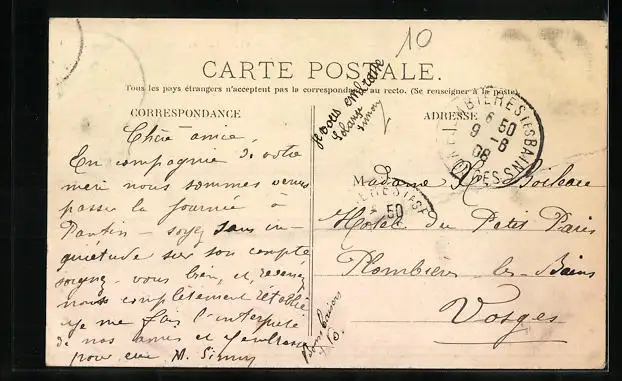 10
CARTE POSTALE.
Tous les pays étrangers n'acceptent pas la correspondance au recto. (Se renseigner à la poste)
CORRESPONDANCE
Chère amie.
En compagnie de votre
mere nous sommes venus
passer la journée à
Pantin – soyez sans in-
quiétude sur son compte
soignez-vous bien, et, revenez
nous complètement rétablie
Je me fais l'interprète
de nos amis et
pour eux M. Simony
je vous embrasse
Solange
Simony
Bons baisers
ADRESSE
PLOMBIERES LES BAINS
6 50
9 -8
08
VOSGES
Madame Boileau
Hotel du Petit Paris
Plombières-les-Bains
Vosges